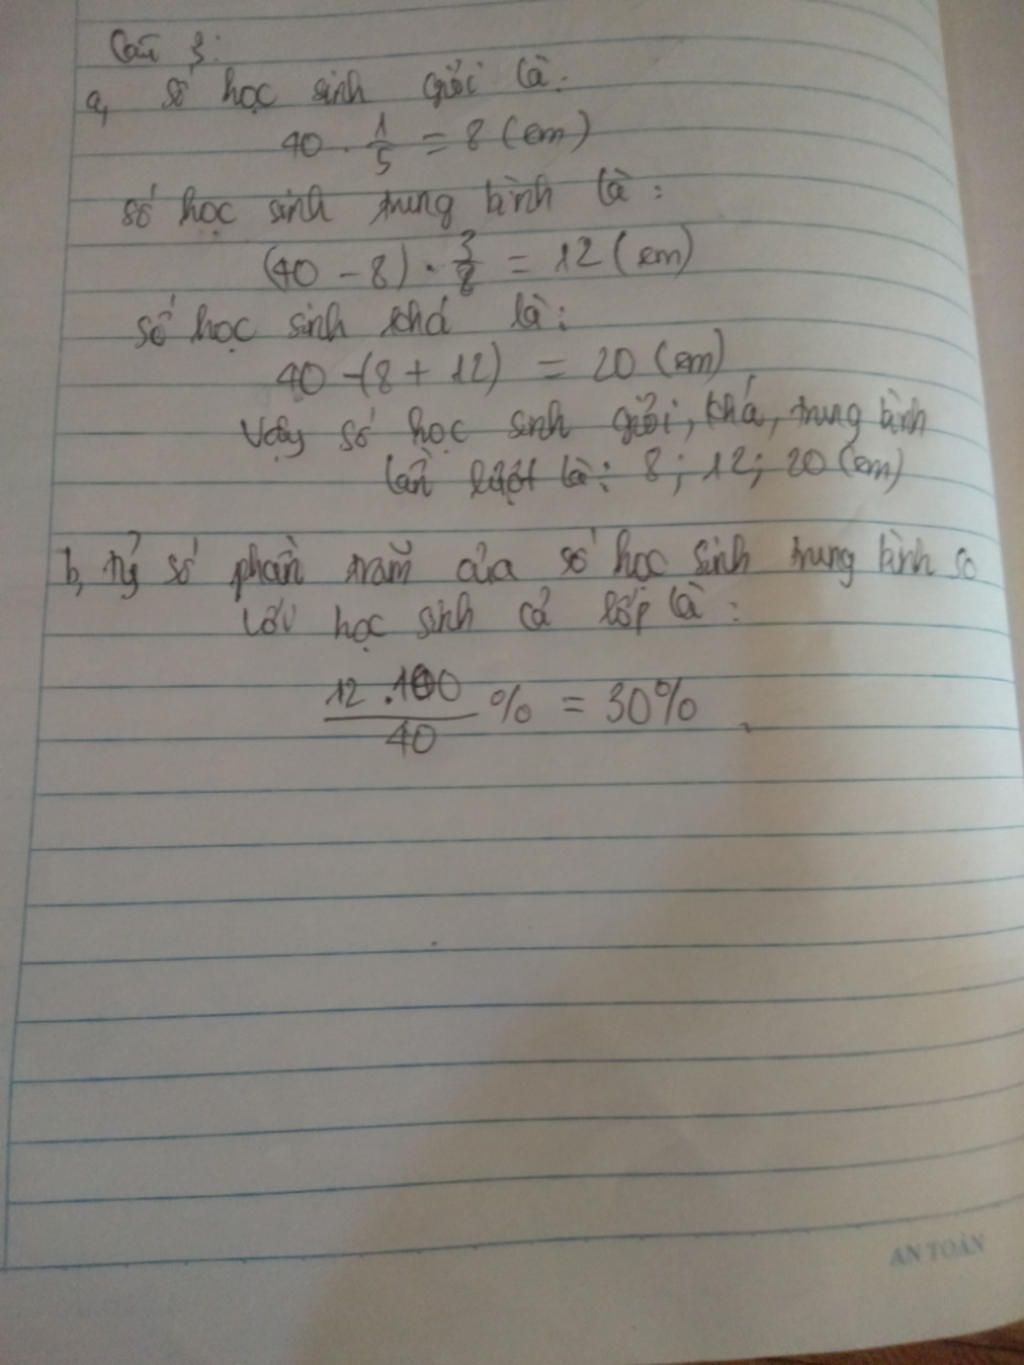 Câu 3:
a, số học sinh giỏi là:
40 . 1/5 = 8 (em)
số học sinh trung bình là:
(40 - 8) . 3/8 = 12 (em)
số học sinh khá là:
40 - (8 + 12) = 20 (em)
Vậy số học sinh giỏi, khá, trung bình
lần lượt là: 8; 12; 20 (em)
b, tỷ số phần trăm của số học sinh trung bình so
với học sinh cả lớp là:
12 .100/40 % = 30%
AN TOÀN